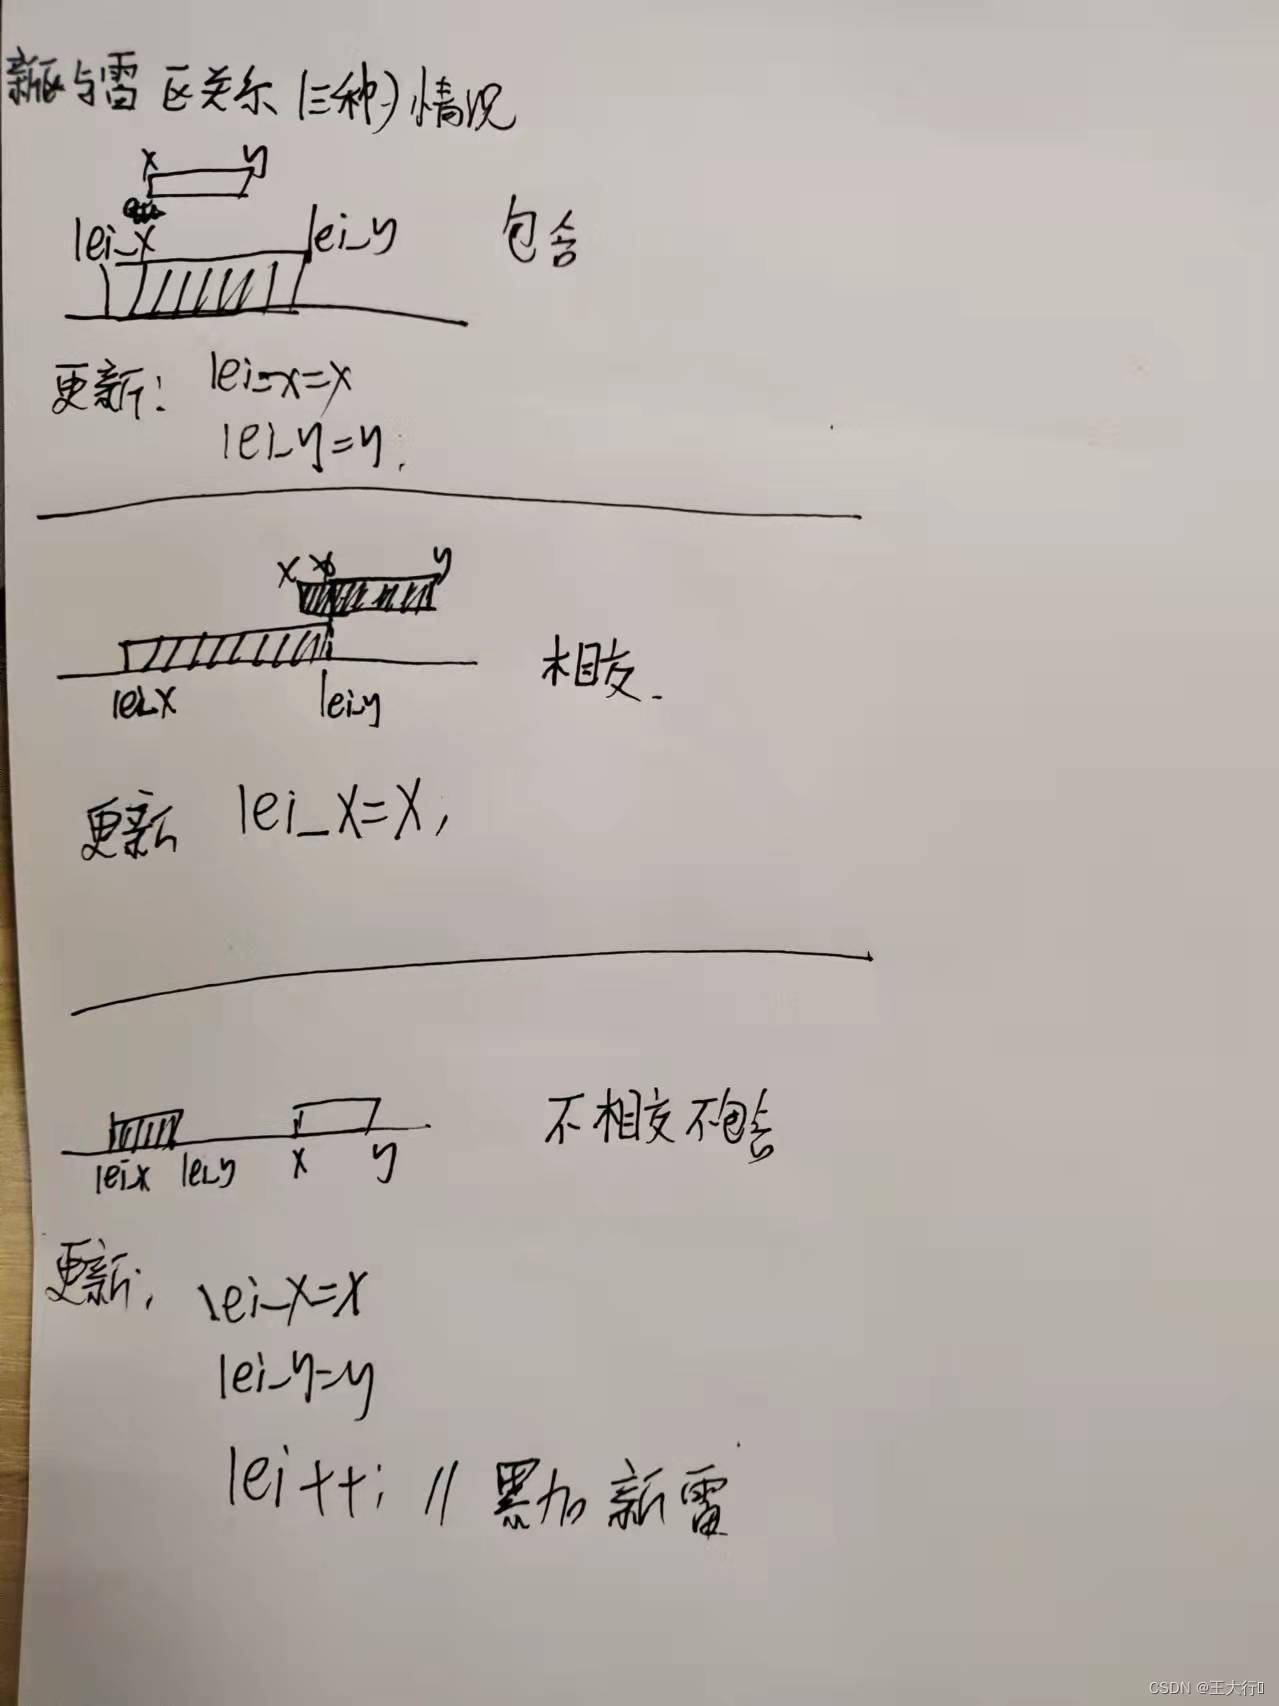 新区与雷区关系(三种)情况
x y
lei_x lei_y 包含
更新: lei_x=x
lei_y=y.
x x y
相交.
lei_x lei_y
更新 lei_x=x,
不相交不包含
lei_x lei_y x y
更新:
lei_x=x
lei_y=y
lei++; // 累加新雷
CSDN @王大行